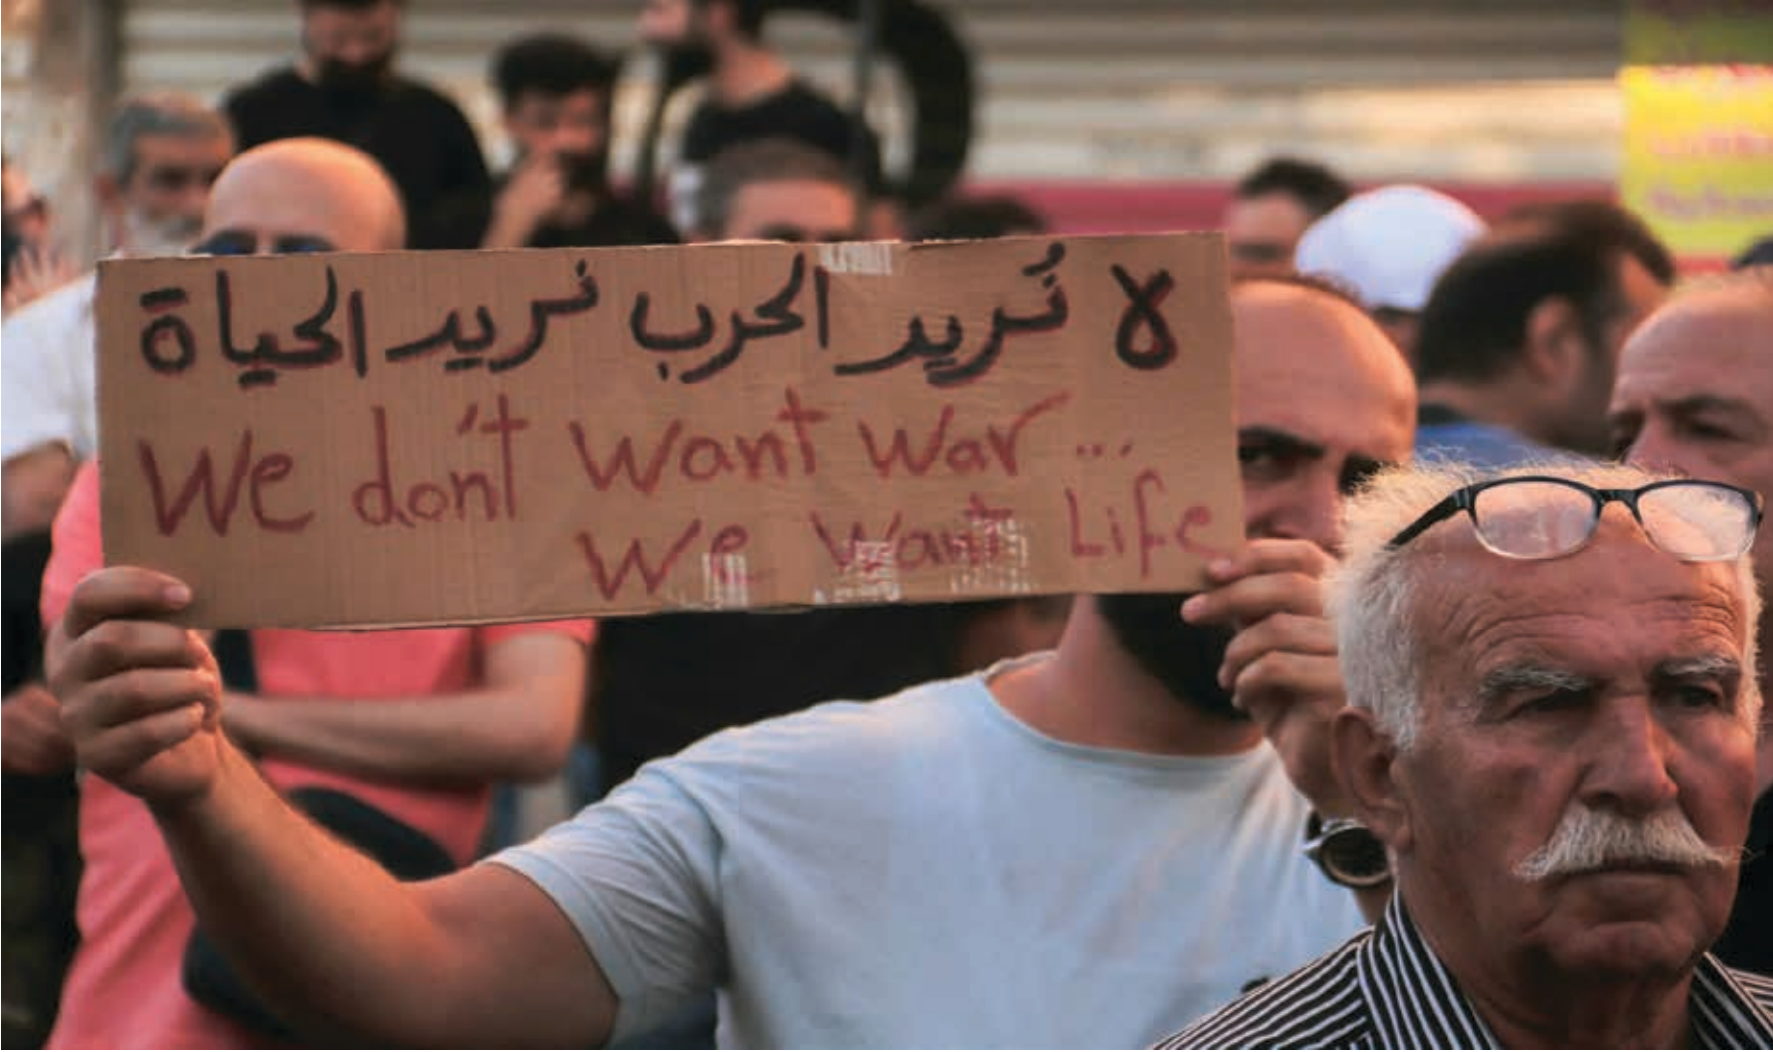 لا نُريد الحرب نريد الحياة
We don't want war ...
We want Life